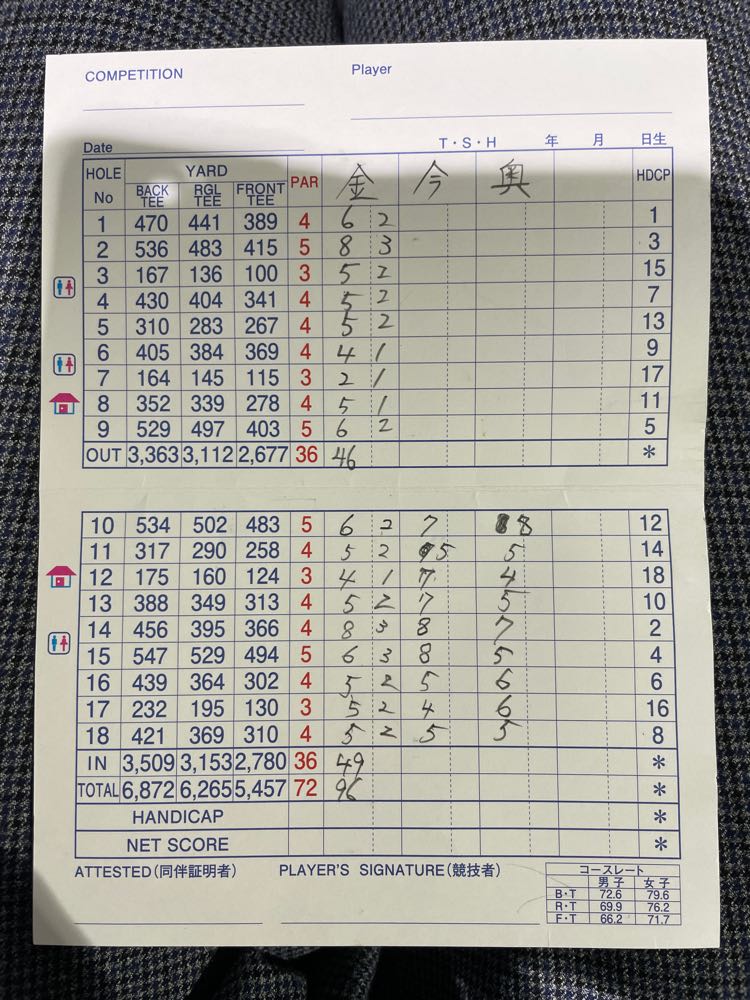 COMPETITION Player
Date T・S・H 年 月 日生
HOLE No YARD PAR 金 今 奥 HDCP
BACK TEE RGL TEE FRONT TEE
1 470 441 389 4 6 2 1
2 536 483 415 5 8 3 3
3 167 136 100 3 5 2 15
4 430 404 341 4 5 2 7
5 310 283 267 4 5 2 13
6 405 384 369 4 4 1 9
7 164 145 115 3 2 1 17
8 352 339 278 4 5 1 11
9 529 497 403 5 6 2 5
OUT 3,363 3,112 2,677 36 46 *
10 534 502 483 5 6 2 7 8 12
11 317 290 258 4 5 2 5 5 14
12 175 160 124 3 4 1 7 4 18
13 388 349 313 4 5 2 7 5 10
14 456 395 366 4 8 3 8 7 2
15 547 529 494 5 6 3 8 5 4
16 439 364 302 4 5 2 5 6 6
17 232 195 130 3 5 2 4 6 16
18 421 369 310 4 5 2 5 5 8
IN 3,509 3,153 2,780 36 49 *
TOTAL 6,872 6,265 5,457 72 96 *
HANDICAP *
NET SCORE *
ATTESTED(同伴証明者) PLAYER'S SIGNATURE(競技者)
コースレート
男子 女子
B・T 72.6 79.6
R・T 69.9 76.2
F・T 66.2 71.7